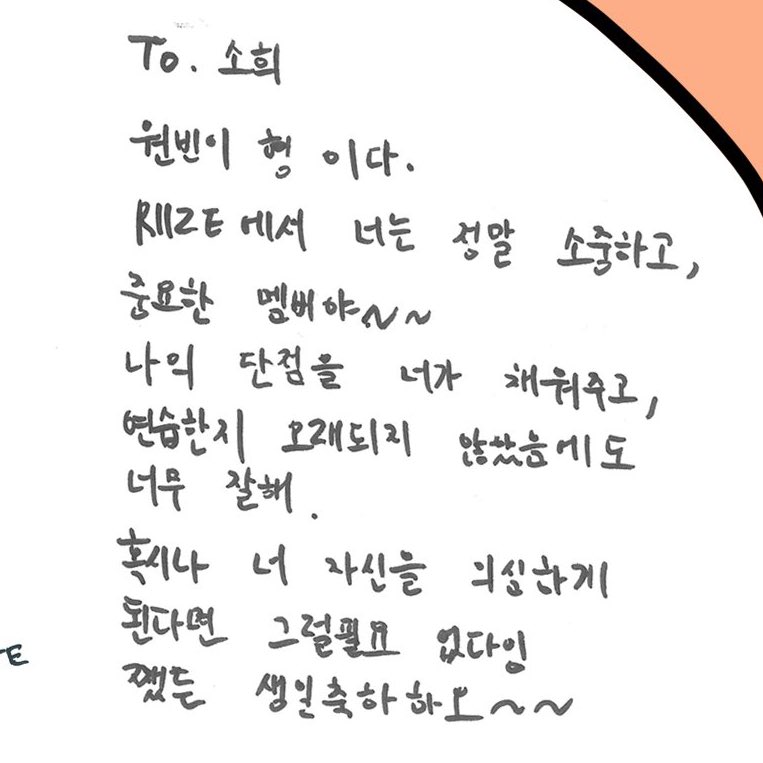 To. 소희
원빈이 형 이다.
RIIZE에서 너는 정말 소중하고,
중요한 멤버야~~
나의 단점을 너가 채워주고,
연습한지 오래되지 않았음에도
너무 잘해.
혹시나 너 자신을 의심하게
된다면 그럴필요 없다잉
쨌든 생일축하하오~~
E